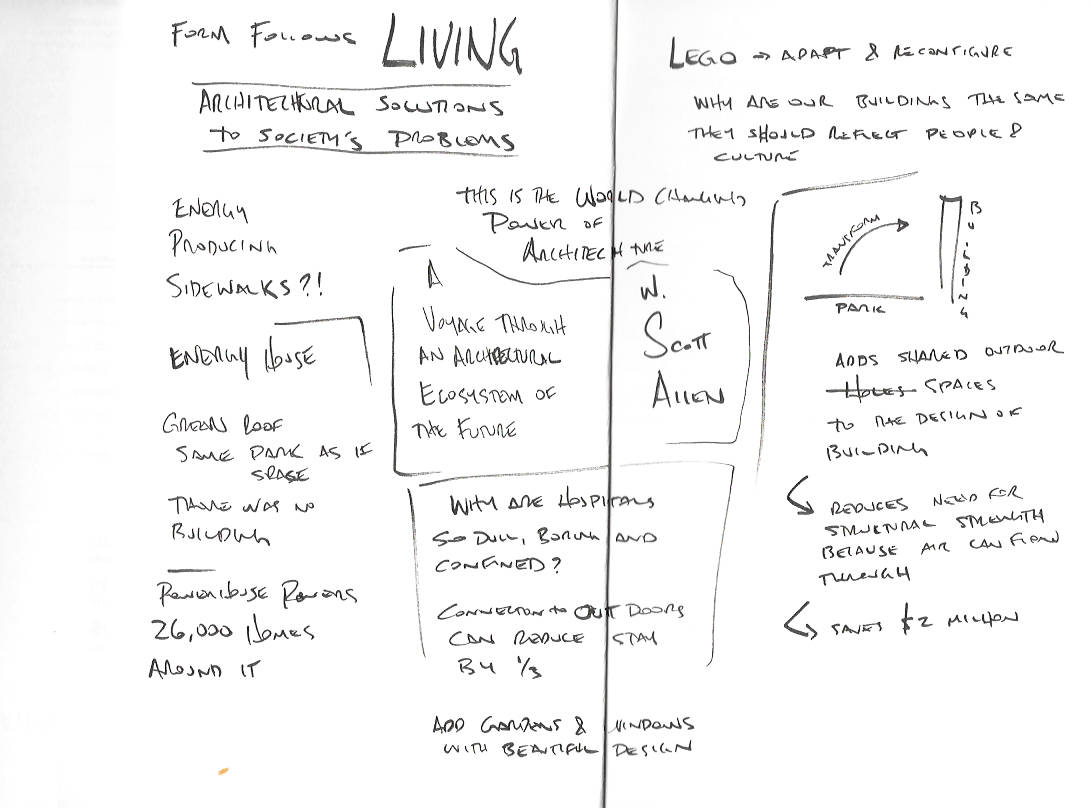 FORM FOLLOWS LIVING
ARCHITECHURAL SOLUTIONS
TO SOCIETY'S PROBLEMS
ENERGY
PRODUCING
SIDEWALKS?!
ENERGY HOUSE
GREEN ROOF
SAME PARK AS IF
SPASE
THERE WAS NO
BUILDING
POWERHOUSE POWERS
26,000 HOMES
AROUND IT
THIS IS THE WORLD CHANGING
POWER OF
ARCHITECHTURE
A
VOYAGE THROUGH
AN ARCHITECTURAL
ECOSYSTEM OF
THE FUTURE
W.
SCOTT
ALLEN
WHY ARE HOSPITALS
SO DULL, BORING AND
CONFINED?
CONNECTION to OUTDOORS
CAN REDUCE STAY
BY 1/3
ADD GARDENS & WINDOWS
WITH BEAUTIFUL DESIGN
LEGO → ADAPT & RECONFIGURE
WHY ARE OUR BUILDINGS THE SAME
THEY SHOULD REFLECT PEOPLE &
CULTURE
TRANSFORM
BUILDING
PARK
ADDS SHARED OUTDOOR
HOLES SPACES
TO THE DESIGN OF
BUILDING
REDUCES NEED FOR
STRUCTURAL STRENGTH
BECAUSE AIR CAN FLOW
THROUGH
SAVES $2 MILLION